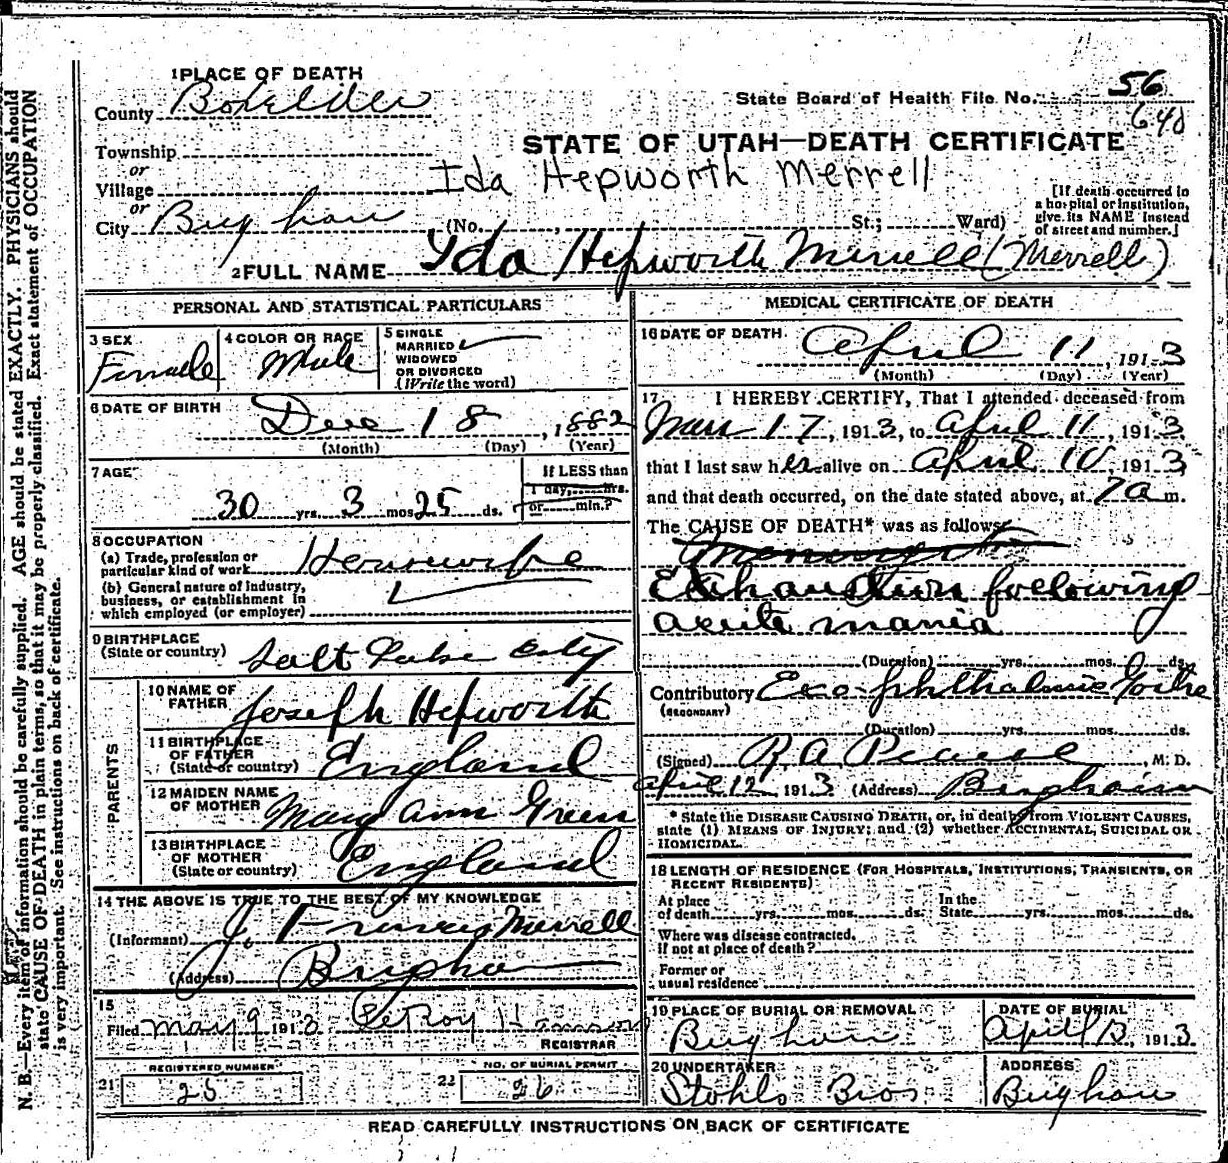 1 PLACE OF DEATH
County Boxelder
State Board of Health File No. 56
640
Township
or
Village
or
City Brigham
STATE OF UTAH—DEATH CERTIFICATE
Ida Hepworth Merrell
(No. , St.; Ward)
[If death occurred in
a hospital or institution,
give its NAME instead
of street and number.]
2 FULL NAME Ida Hepworth Merrell (Merrell)
PERSONAL AND STATISTICAL PARTICULARS
3 SEX
Female
4 COLOR OR RACE
5 SINGLE
MARRIED
WIDOWED
OR DIVORCED
(Write the word)
6 DATE OF BIRTH
Dec 18, 1882
(Month) (Day) (Year)
7 AGE
30 yrs. 3 mos. 25 ds.
If LESS than
1 day, hrs.
or min.?
8 OCCUPATION
(a) Trade, profession or
particular kind of work Housewife
(b) General nature of industry,
business, or establishment in
which employed (or employer)
9 BIRTHPLACE
(State or country) Salt Lake City
PARENTS
10 NAME OF
FATHER Joseph Hepworth
11 BIRTHPLACE
OF FATHER
(State or country) England
12 MAIDEN NAME
OF MOTHER Mary Ann Green
13 BIRTHPLACE
OF MOTHER
(State or country) England
14 THE ABOVE IS TRUE TO THE BEST OF MY KNOWLEDGE
(Informant) J. Francis Merrell
(Address) Brigham
15
Filed May 9 1913 LeRoy Hanson
REGISTRAR
REGISTERED NUMBER
21 25
NO. OF BURIAL PERMIT
22 26
MEDICAL CERTIFICATE OF DEATH
16 DATE OF DEATH
April 11, 1913
(Month) (Day) (Year)
17 I HEREBY CERTIFY, That I attended deceased from
Mar 17, 1913, to April 11, 1913
that I last saw her alive on April 10, 1913
and that death occurred, on the date stated above, at 7 a m.
The CAUSE OF DEATH* was as follows:
Exhaustion following
acute mania
(Duration) yrs. mos. ds.
Contributory Exophthalmic Goitre
(SECONDARY)
(Duration) yrs. mos. ds.
(Signed) R. A. Pearse, M. D.
April 12 1913 (Address) Brigham
* State the DISEASE CAUSING DEATH, or, in death from VIOLENT CAUSES,
state (1) MEANS OF INJURY; and (2) whether ACCIDENTAL, SUICIDAL OR
HOMICIDAL.
18 LENGTH OF RESIDENCE (FOR HOSPITALS, INSTITUTIONS, TRANSIENTS, OR
RECENT RESIDENTS)
At place
of death yrs. mos. ds.
In the
State yrs. mos. ds.
Where was disease contracted,
if not at place of death?
Former or
usual residence
19 PLACE OF BURIAL OR REMOVAL
Brigham
DATE OF BURIAL
April 13, 1913
20 UNDERTAKER
Stohls Bros
ADDRESS
Brigham
READ CAREFULLY INSTRUCTIONS ON BACK OF CERTIFICATE
N. B.—Every item of information should be carefully supplied. AGE should be stated EXACTLY. PHYSICIANS should
state CAUSE OF DEATH in plain terms, so that it may be properly classified. Exact statement of OCCUPATION
is very important. See instructions on back of certificate.